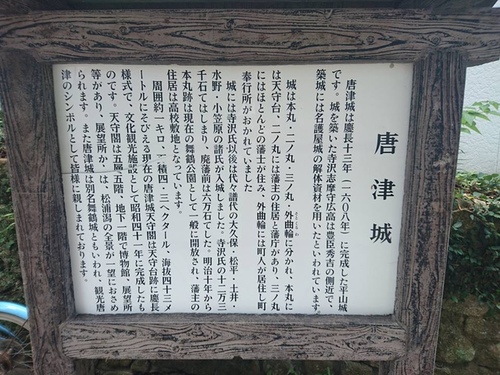 唐津城
唐津城は慶長十三年(一六〇八年)に完成した平山城
です。城を築いた寺沢志摩守広高は豊臣秀吉の側近で、
築城には名護屋城の解体資材を用いたといわれています。
城は本丸・二ノ丸・三ノ丸・外曲輪に分かれ、本丸に
は天守台、二ノ丸には藩主の住居と藩庁があり、三ノ丸
にはほとんどの藩士が住み、外曲輪には町人が居住し町
奉行所がおかれていました
城には寺沢氏以後は代々譜代の大久保・松平・土井・
水野・小笠原の諸氏が入城しました。寺沢氏の十二万三
千石てはしまり、廃藩前は六万石でした。明治十年から
本丸跡は現在の舞鶴公園として一般に開放され、藩主の
住居は高校敷地となっています。
周囲約一キロ、積四・三ヘクタール、海抜四十三メ
ートルにそびえる現在の唐津城天守閣は天守台跡に慶長
様式で、文化観光施設として昭和四十一年に完成したも
のです。天守閣は五層五階、地下一階で博物館、展望所
等があり、展望所か、は、松浦潟の全景が一望におさめ
られます。また唐津城は別名舞鶴城ともいわれ、観光唐
津のシンボルとして皆様に親しまれております。